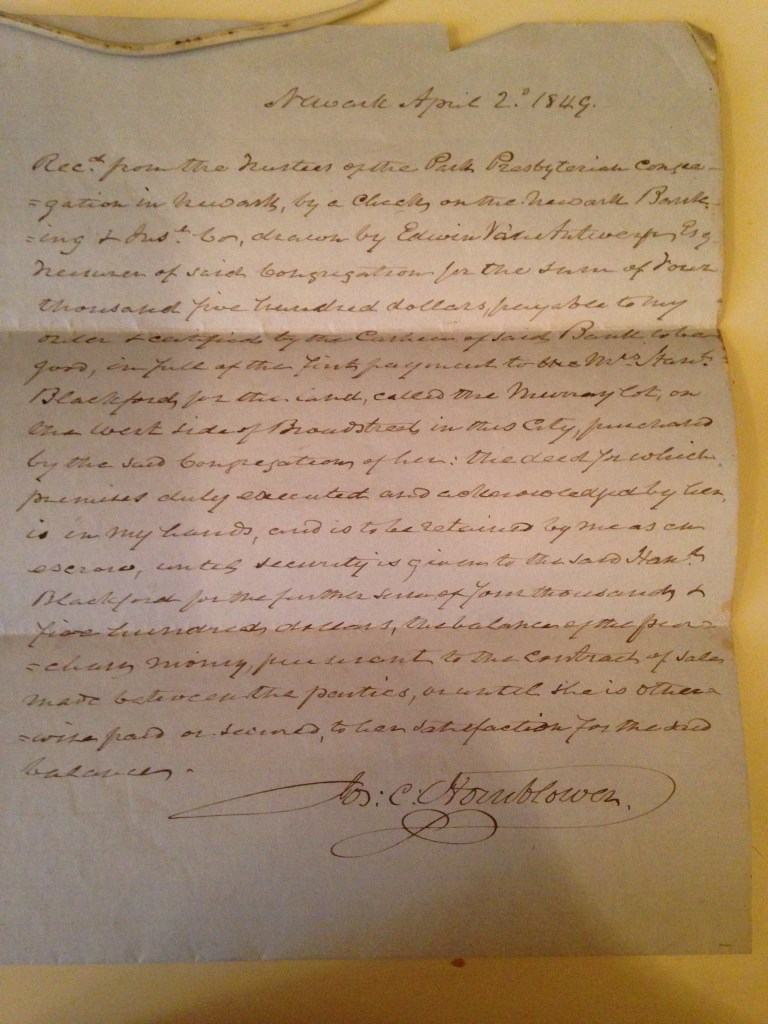 Newark April 2.d 1849.
Rec.d from the Trustees of the Park Presbyterian Congre=
=gation in Newark, by a Check on the Newark Bank=
=ing & Ins.ce Co, drawn by Edwin Van Antwerp, Esq
Treasurer of said Congregation for the sum of Four
thousand five hundred dollars, payable to my
order & certified by the Cashier of said Bank to be
good, in full of the first payment to Mrs Han.h
Blackford, for the land, called the Murray lot, on
the west side of Broadstreet in this City, purchased
by the said Congregation of her: the deed for which
premises duly executed and acknowledged by her,
is in my hands, and is to be retained by me as an
escrow, until security is given to the said Han.h
Blackford for the further sum of four thousand &
five hundred dollars, the balance of the pur=
=chase money, pursuant to the contract of sale
made between the parties, or until she is other=
=wise paid or secured, to her satisfaction for the said
balance.
Jos: C. Hornblower.